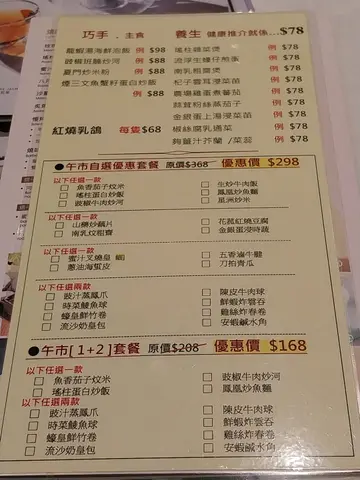 巧手．主食
養生 健康推介就係...$78
龍蝦湯海鮮泡飯 例 $98
豉椒斑腩炒河 例 $88
廈門炒米粉 例 $88
煙三文魚蟹籽蛋白炒飯
例 $88
紅燒乳鴿 每隻$68
瑤柱雜菜煲 例 $78
流浮生蠔仔煎蛋 例 $78
南乳粗齋煲 例 $78
杞子雲耳浸菜苗 例 $78
農場雞蛋煮蕃茄 例 $78
蒜茸粉絲蒸茄子 例 $78
金銀蛋上湯浸菜苗 例 $78
椒絲腐乳通菜 例 $78
薑汁芥蘭 /菜芯 例 $78
●午市自選優惠套餐 原價$368 優惠價 $298
以下任選一款
□ 魚香茄子炆米
□ 瑤柱蛋白炒飯
□ 豉椒牛肉炒河
□ 生炒牛肉飯
□ 鳳凰炒魚麵
□ 星洲炒米
以下任選一款
□ 山藥炒藕片
□ 南乳炆粗齋
□ 花菇紅燒豆腐
□ 金銀蛋浸時蔬
以下任選一款
□ 蜜汁叉燒皇
□ 蔥油海蜇皮
□ 五香滷牛腱
□ 刀拍青瓜
以下任選兩款
□ 豉汁蒸鳳爪
□ 時菜鯪魚球
□ 蠔皇鮮竹卷
□ 流沙奶皇包
□ 陳皮牛肉球
□ 鮮蝦炸雲吞
□ 雞絲炸春卷
□ 安蝦鹹水角
●午市[1+2]套餐 原價$208 優惠價 $168
以下任選一款
□ 魚香茄子炆米
□ 瑤柱蛋白炒飯
□ 豉椒牛肉炒河
□ 鳳凰炒魚麵
以下任選兩款
□ 豉汁蒸鳳爪
□ 時菜鯪魚球
□ 蠔皇鮮竹卷
□ 流沙奶皇包
□ 陳皮牛肉球
□ 鮮蝦炸雲吞
□ 雞絲炸春卷
□ 安蝦鹹水角